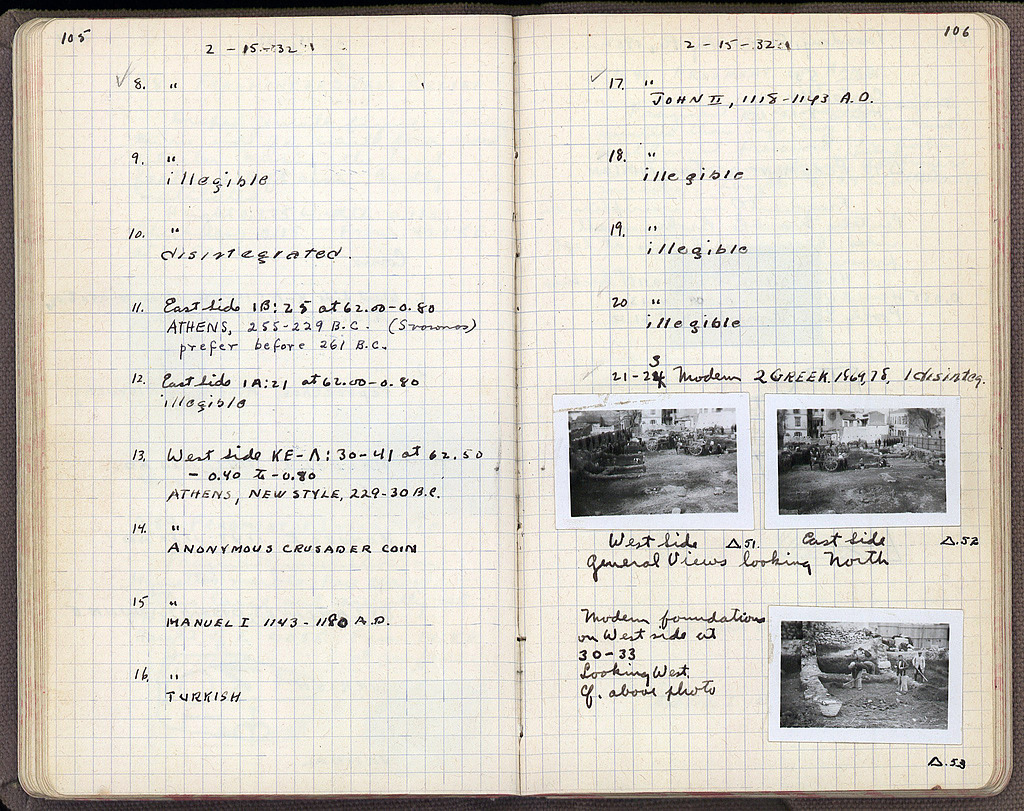 105
2-15-32
8. "
9. "
illegible
10. "
disintegrated.
11. East side 1B:25 at 62.00-0.80
ATHENS, 255-229 B.C. (Svoronos)
prefer before 261 B.C.
12. East side 1A:21 at 62.00-0.80
illegible
13. West side KE-Λ:30-41 at 62.50
- 0.40 to -0.80
ATHENS, NEW STYLE, 229-30 B.C.
14. "
ANONYMOUS CRUSADER COIN
15 "
MANUEL I 1143-1180 A.D.
16. "
TURKISH
106
2-15-32
17. "
JOHN II, 1118-1143 A.D.
18. "
illegible
19. "
illegible
20 "
illegible
21-23 Modern 2 GREEK, 1869, 78, 1 disinteg.
West Side Δ.51. East Side Δ.52
General Views looking North
Modern foundations
on West side at
30-33
Looking West.
Cf. above photo
Δ.53